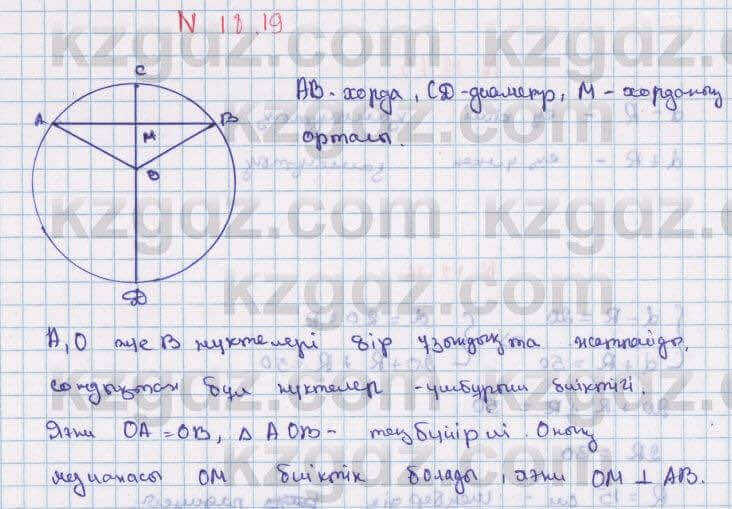 N 18.19
C
A
B
M
O
D
AB - хорда, CD - диаметр, M - хорданың
орталы.
A, O және B нүктелері бір ұзындықта жатпайды,
сондықтан бұл нүктелер - үшбұрыш биіктігі.
Яғни OA = OB, Δ AOB - теңбүйірлі. Оның
медианасы OM биіктік болады, яғни OM ⊥ AB.
kzgdz.com